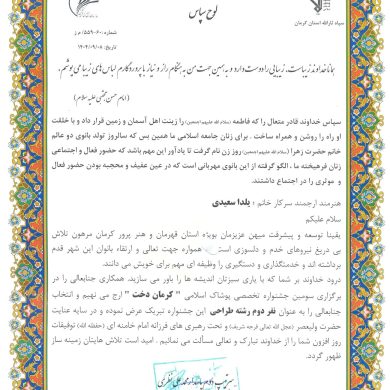 لوح سپاس
سپاه ثارالله استان کرمان
شماره: ۵۵۹۰۶۰/م ز
تاریخ: ۱۴۰۲/۰۹/۰۸
همانا خداوند زیباست، زیبایی را دوست دارد و به همین جهت من به هنگام راز و نیاز با پروردگارم لباس‌های زیبا می‌پوشم.
(امام حسن مجتبی علیه سلام)
سپاس خداوند قادر متعال را که فاطمه (سلام الله علیها) را زینت اهل آسمان و زمین قرار داد و با خلقت
او راه را روشن و همراه ساخت. برای زنان جامعه اسلامی ما همین بس که سالروز تولد بانوی دو عالم
حضرت زهرا (سلام الله علیها) روز زن نام گرفت تا یادآور این مهم باشد که حضور فعال و اجتماعی
زنان فرهیخته ما، الگو گرفته از این بانوی مهربانی است که در عین عفیف و محجبه بودن حضور فعال
و موثری را در اجتماع داشتند.
هنرمند ارجمند سرکار خانم: یلدا سعیدی
سلام علیکم
یقینا توسعه و پیشرفت میهن عزیزمان بویژه استان قهرمان و هنر پرور کرمان مرهون تلاش
بی دریغ نیروهای خدم و دلسوزی است همواره جهت تعالی و ارتقاء بانوان این شهر قدم
برداشته اند و خدمتگذاری و دستگیری را وظیفه ای مهم برای خویش می دانند.
درود خداوند بر شما که با یاری سبزتان اندیشه ها را باور می سازید. همکاری جنابعالی را در
برگزاری سومین جشنواره تخصصی پوشاک اسلامی " کرمان دخت " ارج می نهیم و انتخاب
جنابعالی را به عنوان نفر دوم رشته طراحی این جشنواره تبریک عرض نموده و در سایه عنایت
حضرت ولیعصر (عجل الله تعالی فرجه شریف) و تحت رهبری های فرزانه امام خامنه ای (حفظه الله) توفیقات
روز افزون شما را از خداوند تبارک و تعالی مسألت می نمائیم. امید است تلاش هایتان زمینه ساز
ظهور گردد.